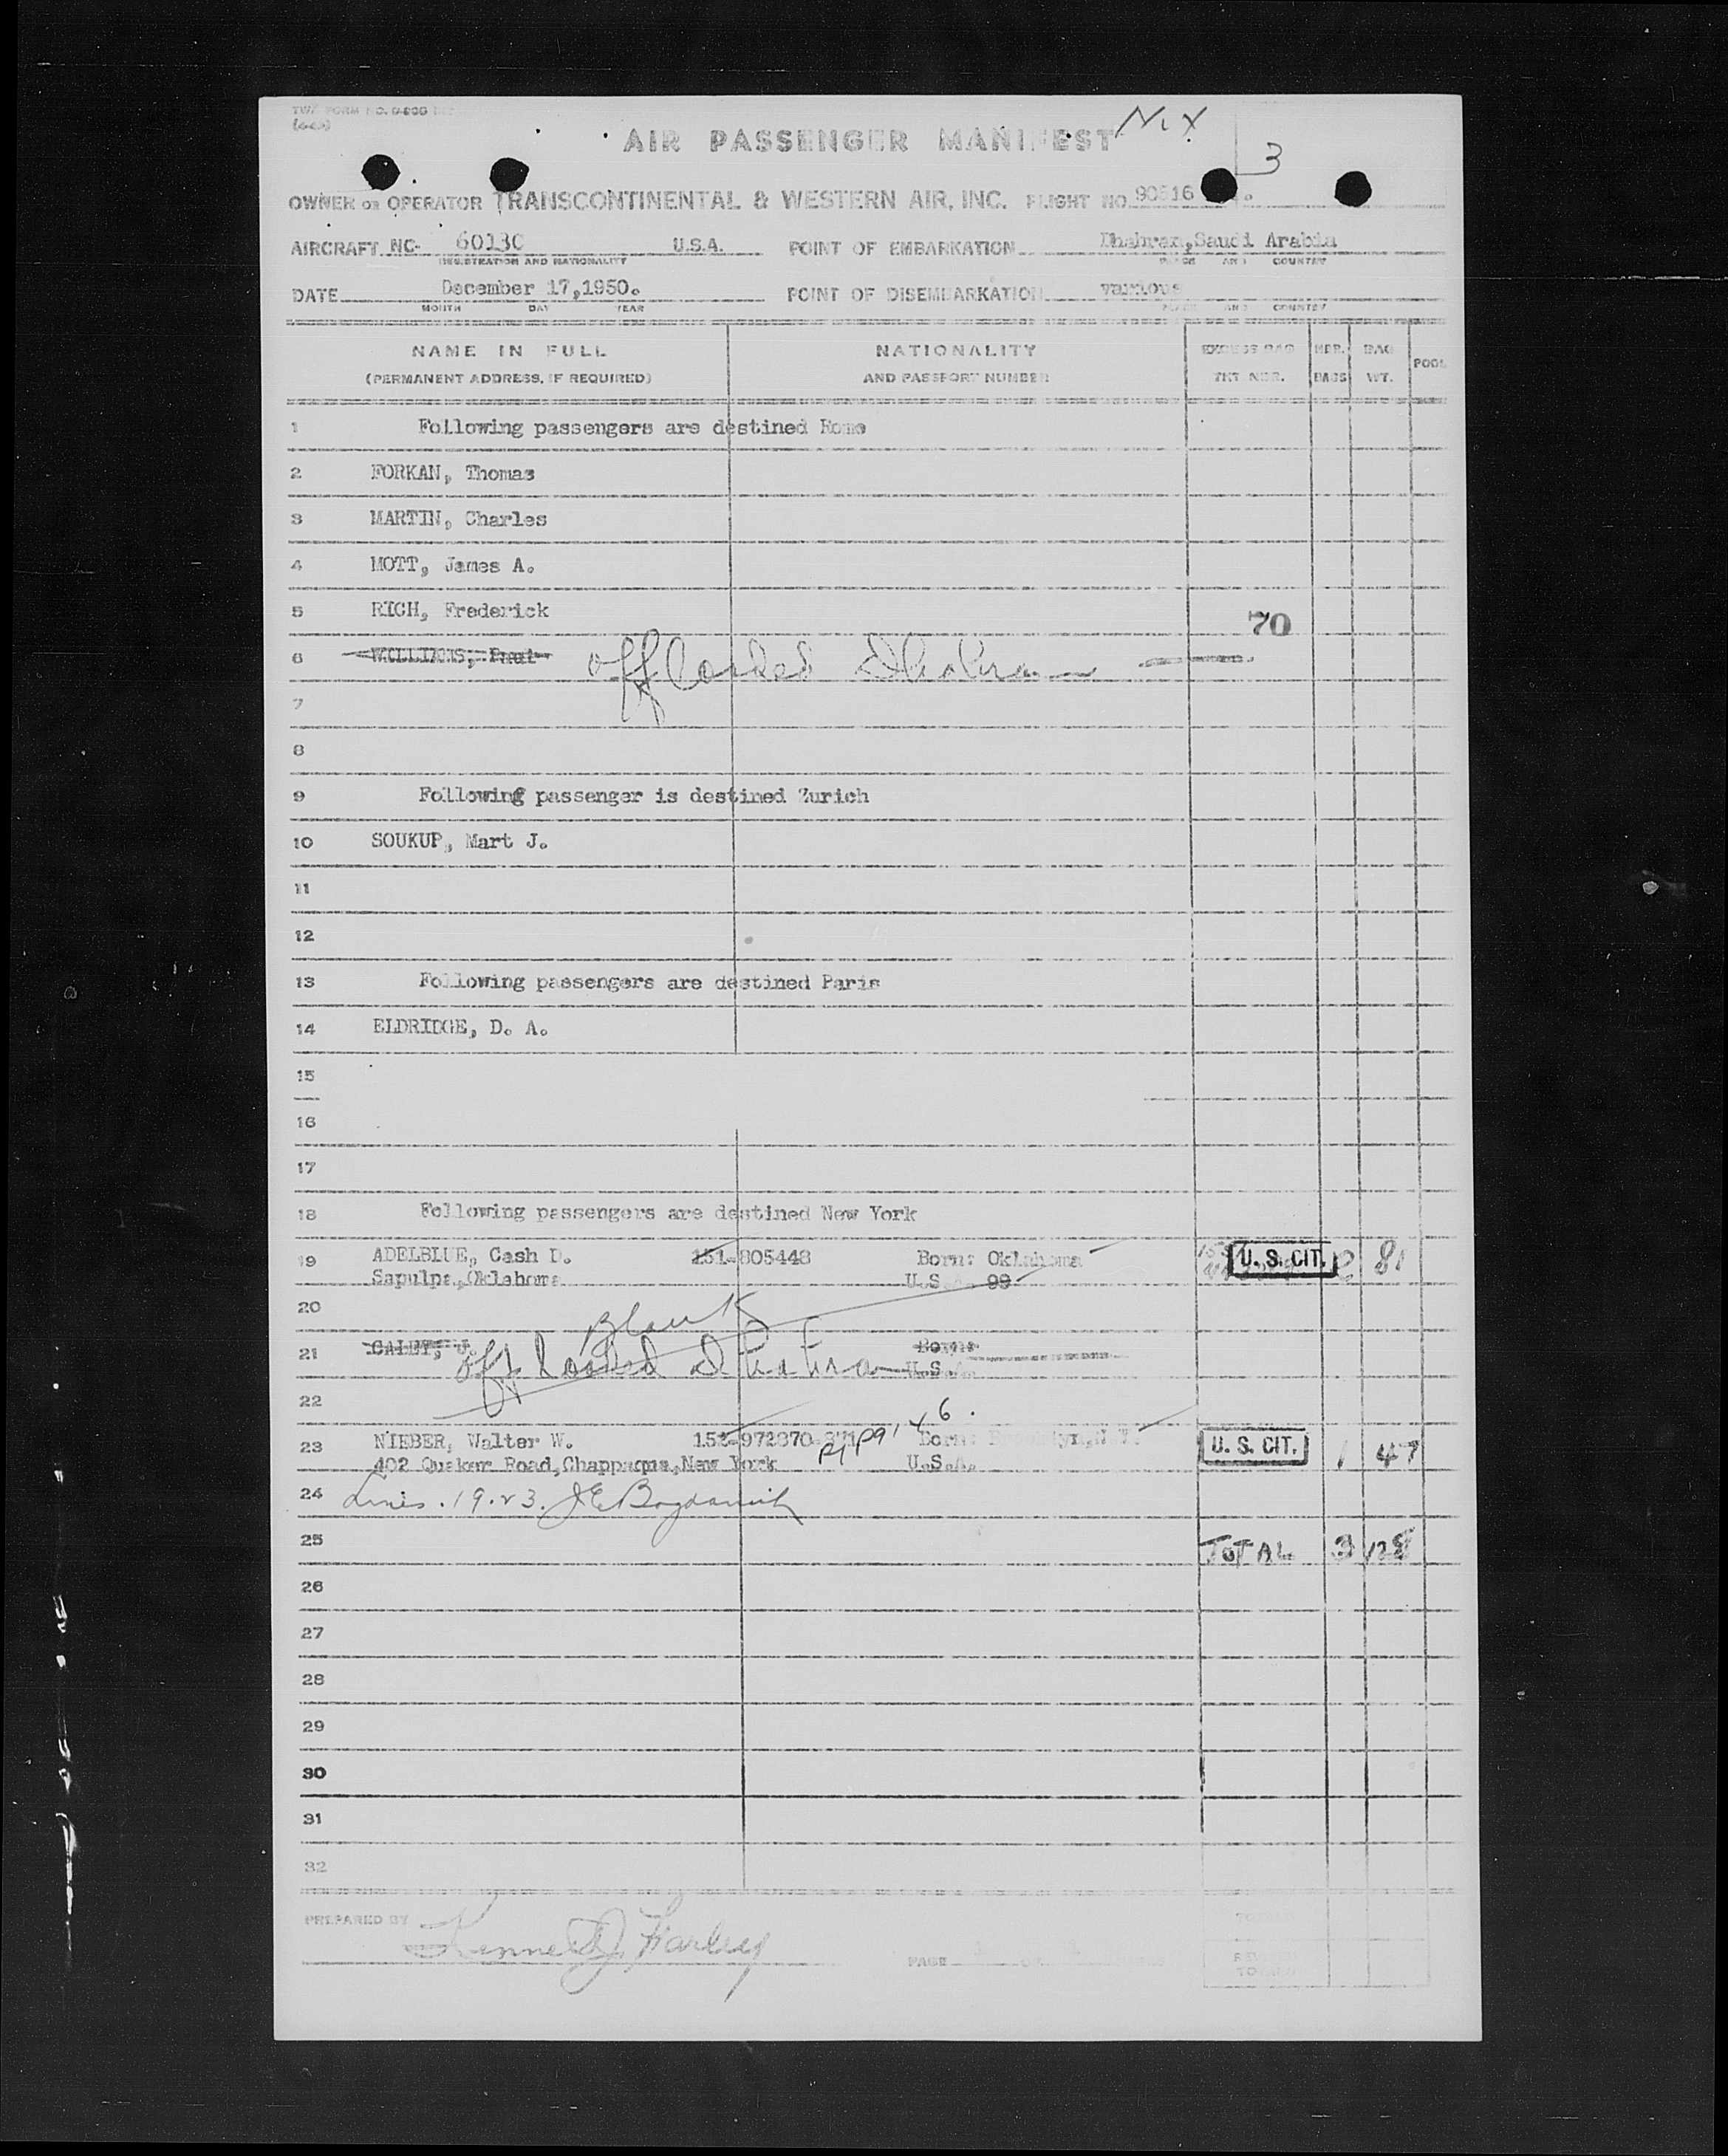 TWA FORM NO.
AIR PASSENGER MANIFEST
3
OWNER OR OPERATOR TRANSCONTINENTAL & WESTERN AIR, INC. FLIGHT NO. 90516
AIRCRAFT NC- 6013C U.S.A. POINT OF EMBARKATION Dhahran,Saudi Arabia
REGISTRATION AND NATIONALITY PLACE AND COUNTRY
DATE December 17,1950. POINT OF DISEMBARKATION various
MONTH DAY YEAR PLACE AND COUNTRY
NAME IN FULL NATIONALITY EXCESS BAG NBR. BAG POOL
(PERMANENT ADDRESS, IF REQUIRED) AND PASSPORT NUMBER TKT NBR. BAGS WT.
1 Following passengers are destined Rome
2 FORKAN, Thomas
3 MARTIN, Charles
4 MOTT, James A.
5 RICH, Frederick
70
6 WILLIAMS, Paul offloaded Dhahran
7
8
9 Following passenger is destined Zurich
10 SOUKUP, Mart J.
11
12
13 Following passengers are destined Paris
14 ELDRIDGE, D. A.
15
16
17
18 Following passengers are destined New York
19 ADELBLUE, Cash D. 151-805448 Born: Oklahoma U. S. CIT. 2 81
Sapulpa,Oklahoma U.S. 99
20
Blank
21 CALEY, J. Born:
off loaded Dhahran U.S.
22
6.
23 NIEBER, Walter W. 151-972870 Born: Brooklyn,N.Y. U. S. CIT. 1 47
402 Quaker Road,Chappaqua,New York U.S.A.
24 Lines. 19.23.
25 TOTAL 3 128
26
27
28
29
30
31
32
PREPARED BY Kenneth J. Farley
PAGE